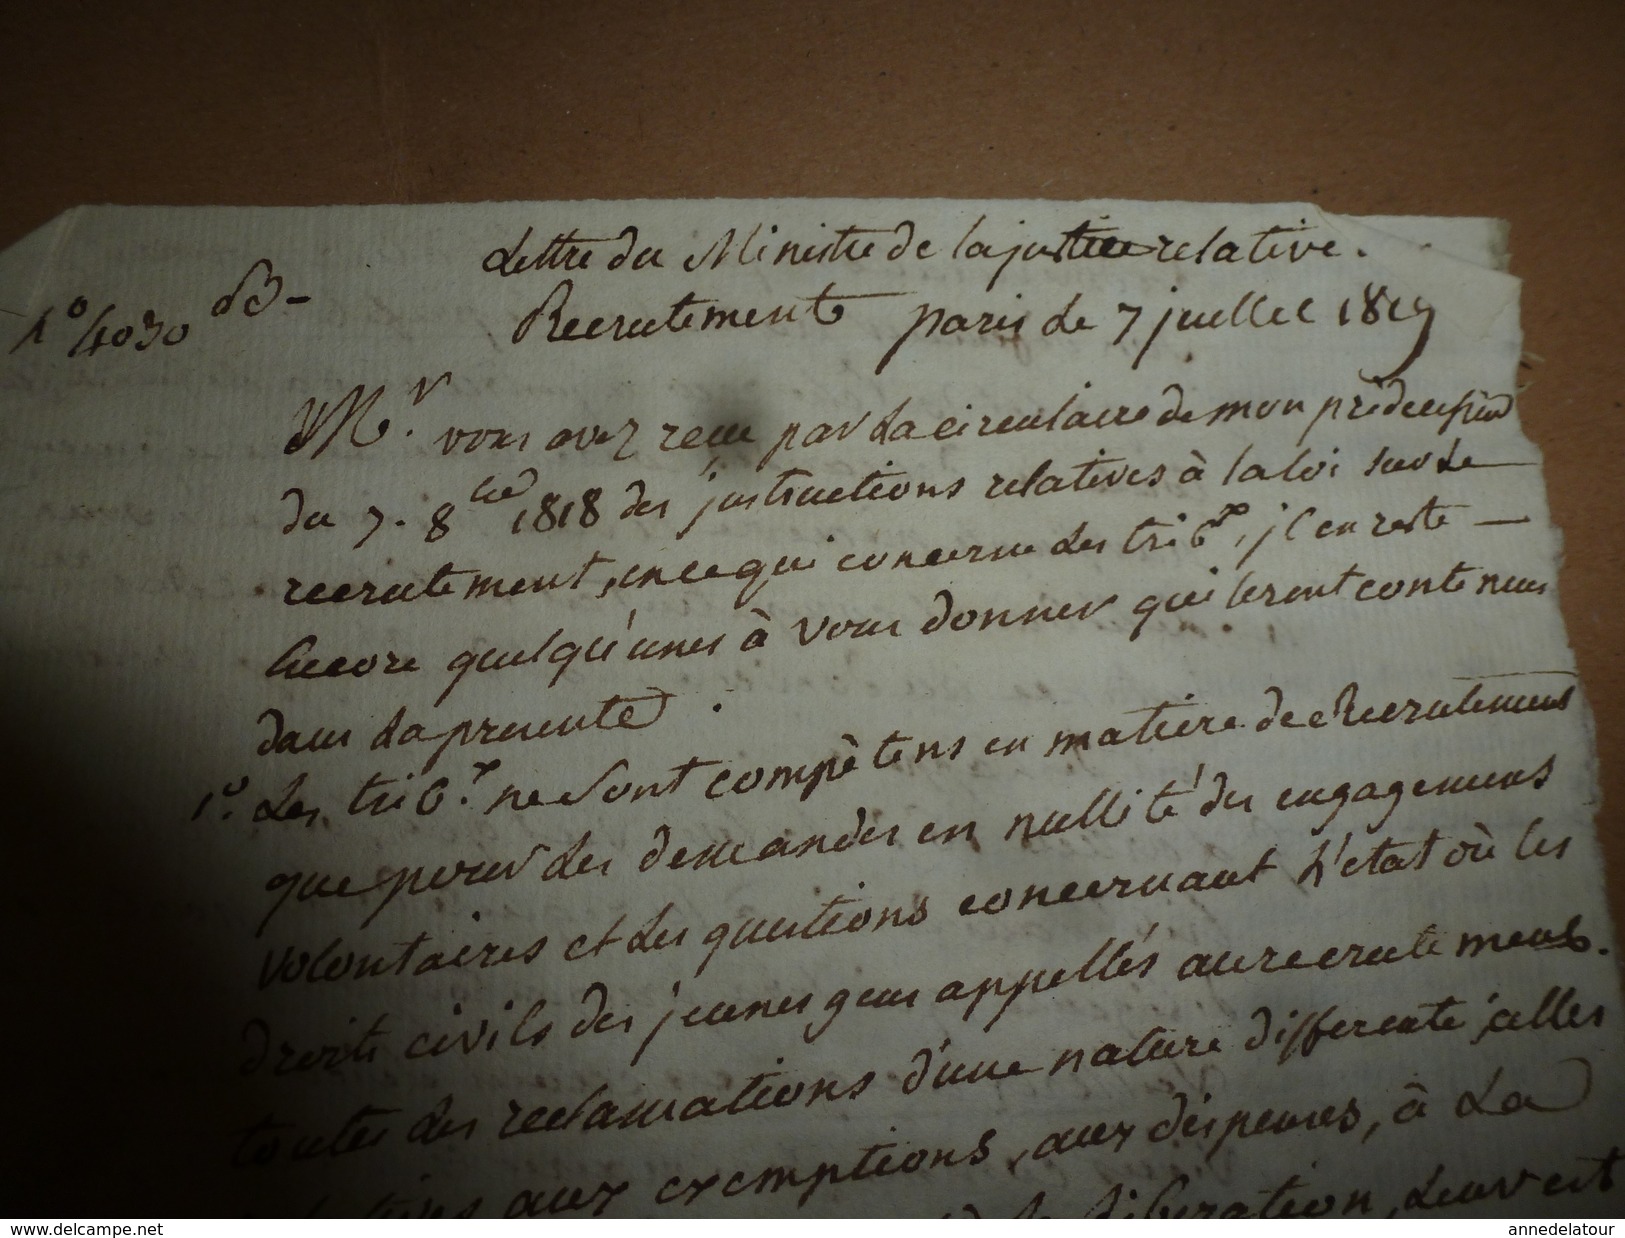 Lettre du Ministre de la justice relative.
1° 4030 B -
Recrutement Paris le 7 juillet 1819
Mr. vous avez reçu par la circulaire de mon prédécesseur
du 7. 8bre 1818 des jnstructions relatives à la loi sur le
recrutement, en ce qui concerne les tribx, jl en reste —
encore quelqu'unes à vous donner qui seront contenues
dans la presente .
1°. Les tribx. ne sont compètens en matiere de Recrutement
que pour les demandes en nullité des engagemens
volontaires et les questions concernant l'etat où les
droits civils des jeunes gens appellés au recrutement.
toutes les reclamations d'une nature differente, celles
relatives aux exemptions, aux dispenses, à la
la libération, doivent
www.delcampe.net
annedelatour